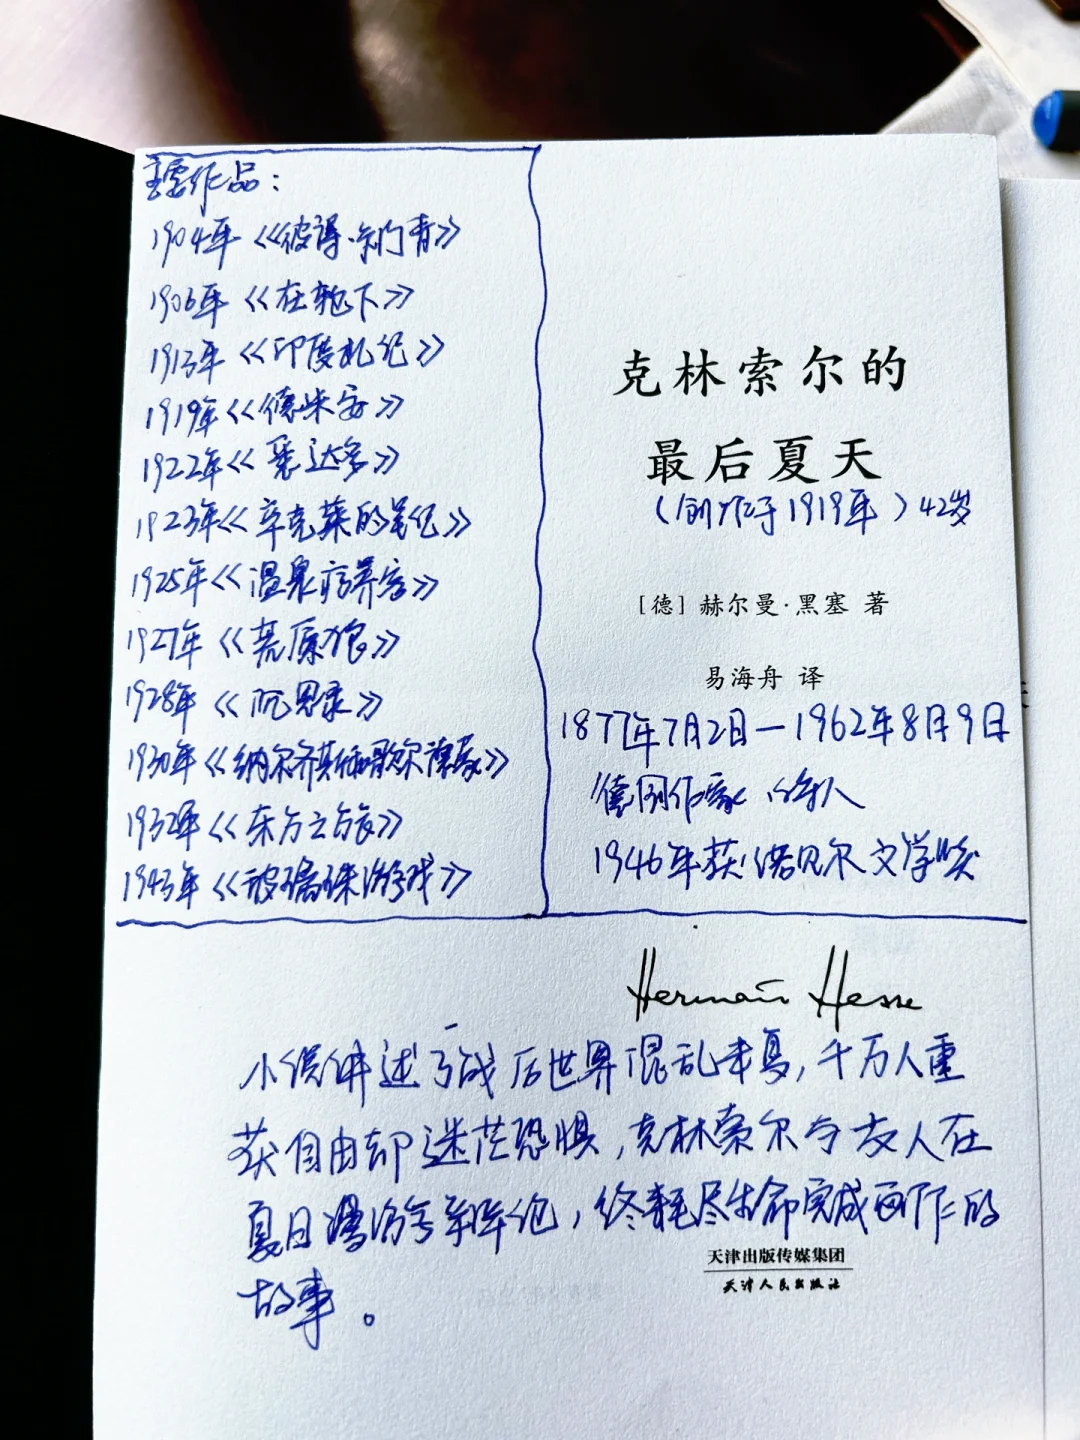 主要作品：
1904年《彼得·卡门青》
1906年《在轮下》
1913年《印度札记》
1919年《德米安》
1922年《悉达多》
1923年《辛克莱的笔记》
1925年《温泉疗养客》
1927年《荒原狼》
1928年《沉思录》
1930年《纳尔齐斯和歌尔德蒙》
1932年《东方之旅》
1943年《玻璃珠游戏》
克林索尔的
最后夏天
（创作于1919年）42岁
［德］赫尔曼·黑塞 著
易海舟 译
1877年7月2日—1962年8月9日
德国作家 诗人
1946年获诺贝尔文学奖
Hermann Hesse
小说讲述了战后世界混乱未复，千万人重
获自由却迷茫恐惧，克林索尔与友人在
夏日漫游辩论，终耗尽生命完成画作的
故事。
天津出版传媒集团
天津人民出版社